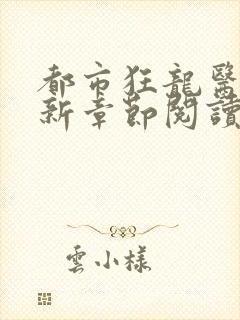 都市狂龍醫
新章節閱讀
雲小樣